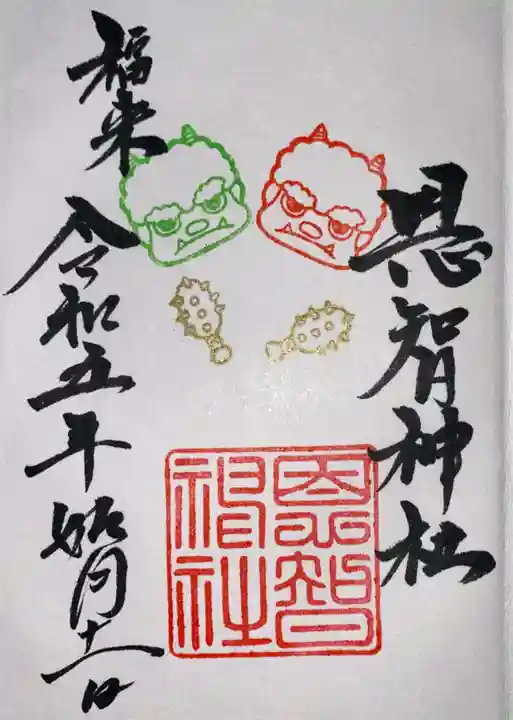 恩智神社
恩智
神社
福来
令和五年如月十一日